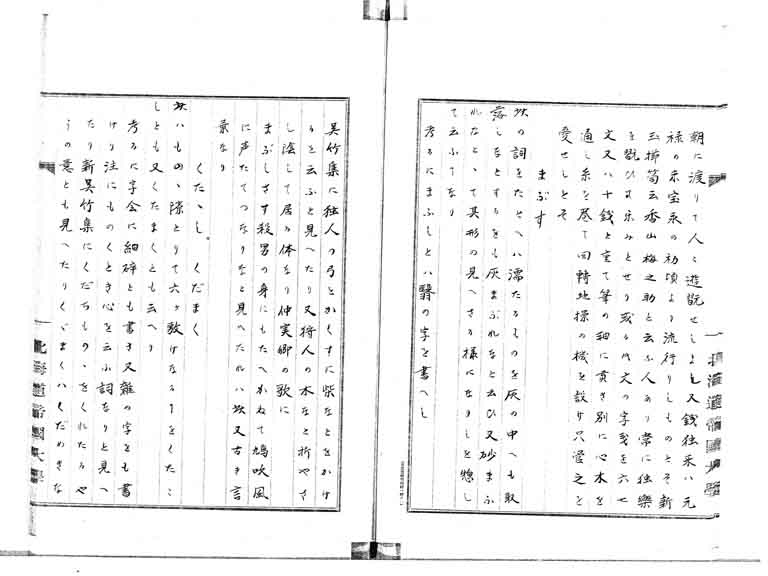 朝に渡りて人々遊翫せしよし又銭独楽ハ元
禄の末宝永の初頃より流行りしものとそ新
玉櫛笥云香山梅之助と云ふ人あり常に独楽
を翫ひ楽みとせり或る時文の字銭を六七
文又ハ十銭と重て箸の細に貫き別に心木を
通し糸を巻て回転地擦の機を設け只管之を
愛せしとそ
まぶす
此の詞をたとへハ濡たるものを灰の中へも取
落しなとするをも灰まぶれなと云ひ又砂まふ
れなと、て其形の見へさる様になりしを惣し
て云ふてなり
考るにまふしとハ翳の字を書へし
呉竹集に独人の弓とかくすに柴なとをかけ
るを云ふと見へたり又狩人の木なと折やさ
し陰して居る体なり仲実卿の歌に
まぶしさす殺男の身にもたへかねて鳩吹風
に声たてつなりなと見へたれハ此又古き言
葉なり
くたゝし。くだまく
此ハもの、際とりて六ヶ敷けなる事をくたこ
しとも又くたまくとも云へり
考るに字会に細砕とも書き又雜の字とも書
けり注にものくとき心を云ふ詞なりと見へ
たり新呉竹集にくだちもの、をくれたるや
うの意とも見へたりくだまくハくだめきな
北海道帝國大學
北海道帝國大學